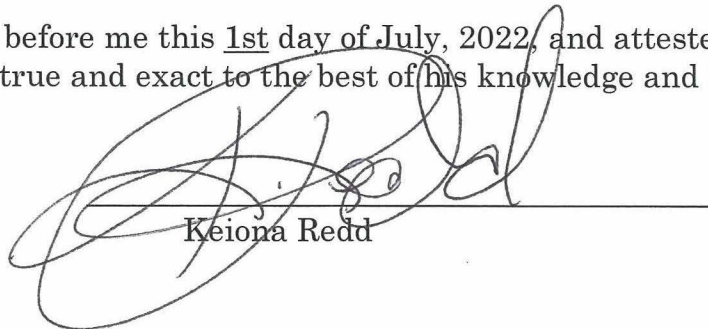 before me this 1st day of July, 2022, and atteste
true and exact to the best of his knowledge and
Keiona Redd